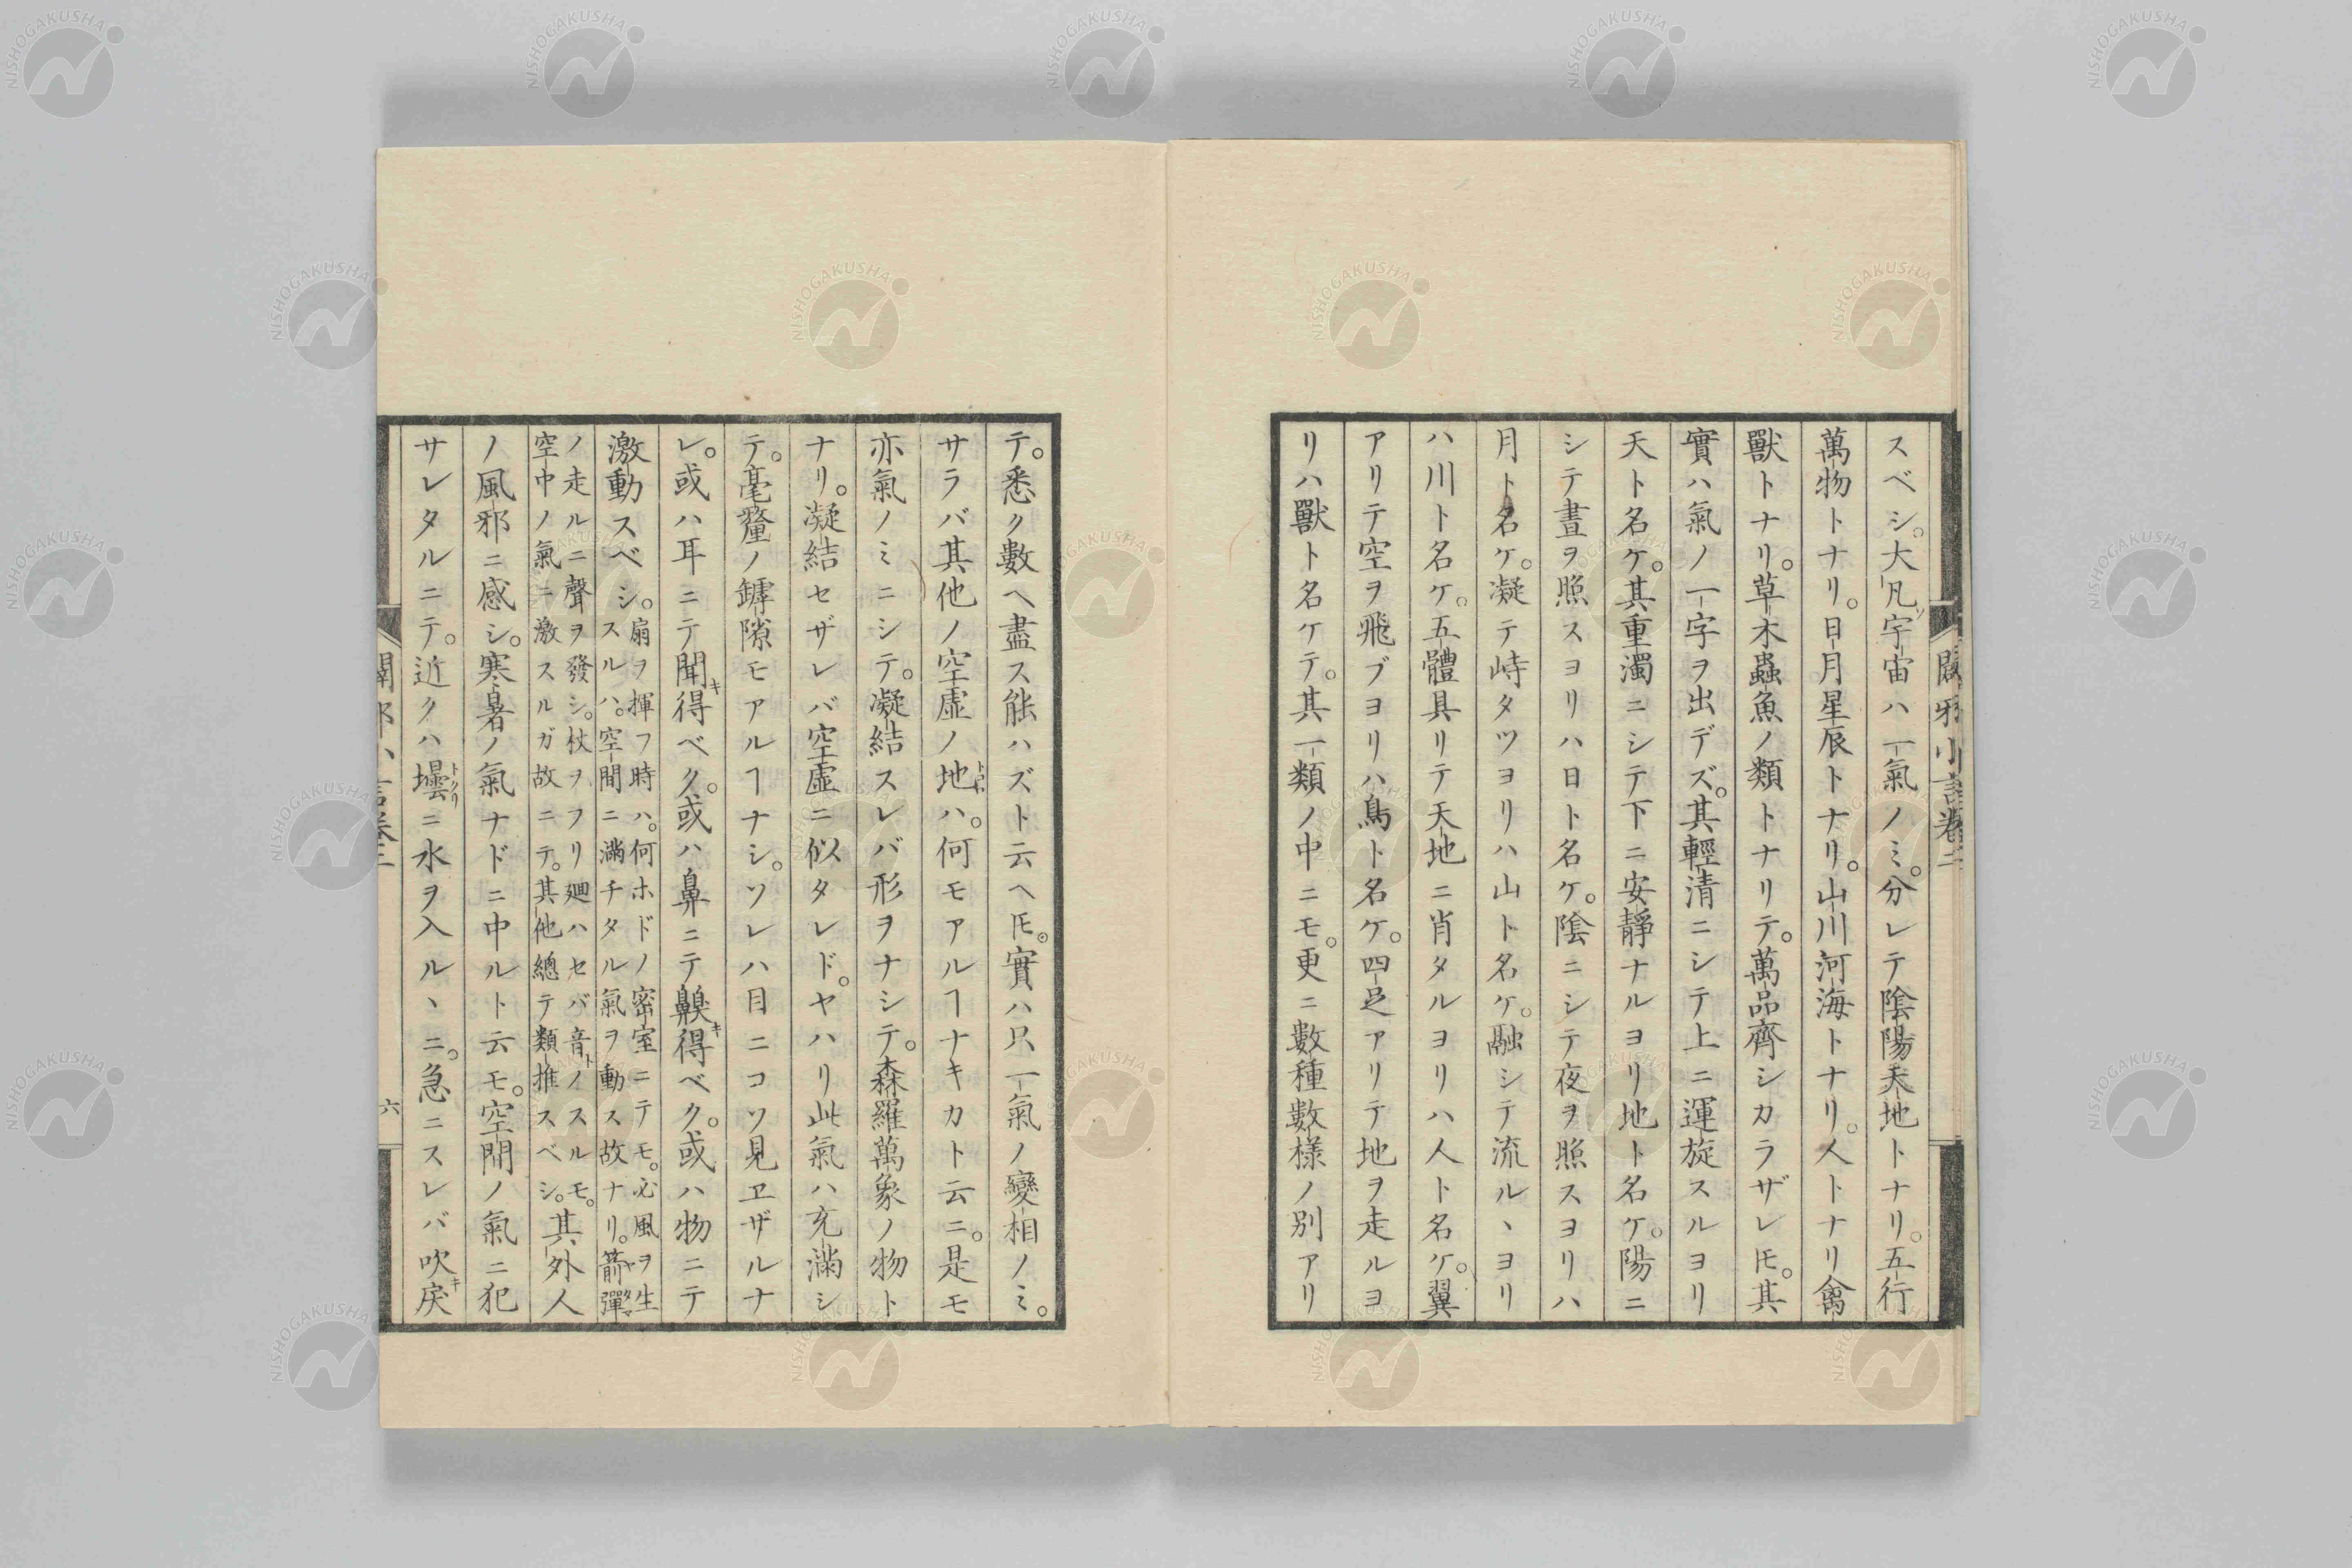 闢邪小言卷二
スベシ。大凡宇宙ハ一氣ノミ。分レテ陰陽天地トナリ。五行
萬物トナリ。日月星辰トナリ。山川河海トナリ。人トナリ禽
獸トナリ。草木蟲魚ノ類トナリテ。萬品齊シカラザレ𪜈。其
實ハ氣ノ一字ヲ出デズ。其輕清ニシテ上ニ運旋スルヨリ
天ト名ケ。其重濁ニシテ下ニ安靜ナルヨリ地ト名ケ。陽ニ
シテ晝ヲ照スヨリハ日ト名ケ。陰ニシテ夜ヲ照スヨリハ
月ト名ケ。凝テ峙タツヨリハ山ト名ケ。融シテ流ルヽヨリ
ハ川ト名ケ。五體具リテ天地ニ肖タルヨリハ人ト名ケ。翼
アリテ空ヲ飛ブヨリハ鳥ト名ケ。四足アリテ地ヲ走ルヨ
リハ獸ト名ケテ。其一類ノ中ニモ。更ニ數種數様ノ別アリ
テ。悉ク數ヘ盡ス能ハズト云ヘ𪜈。實ハ只一氣ノ變相ノミ。
サラバ其他ノ空虛ノ地ハ。何モアルヿナキカト云ニ。是モ
亦氣ノミニシテ。凝結スレバ形ヲナシテ。森羅萬象ノ物ト
ナリ。凝結セザレバ空虛ニ似タレド。ヤハリ此氣ハ充滿シ
テ。毫釐ノ罅隙モアルヿナシ。ソレハ目ニコソ見ヱザルナ
レ。或ハ耳ニテ聞得ベク。或ハ鼻ニテ齅得ベク。或ハ物ニテ
激動スベシ。扇ヲ揮フ時ハ。何ホドノ密室ニテモ。必風ヲ生
スルハ。空間ニ滿チタル氣ヲ動ス故ナリ。箭彈
ノ走ルニ聲ヲ發シ。杖ヲフリ廻ハセバ音ノスルモ。
空中ノ氣ニ激スルガ故ニテ。其他總テ類推スベシ。其外人
ノ風邪ニ感シ。寒暑ノ氣ナドニ中ルト云モ。空間ノ氣ニ犯
サレタルニテ。近クハ壜ニ水ヲ入ルヽニ。急ニスレバ吹戻
闢邪小言卷二
六